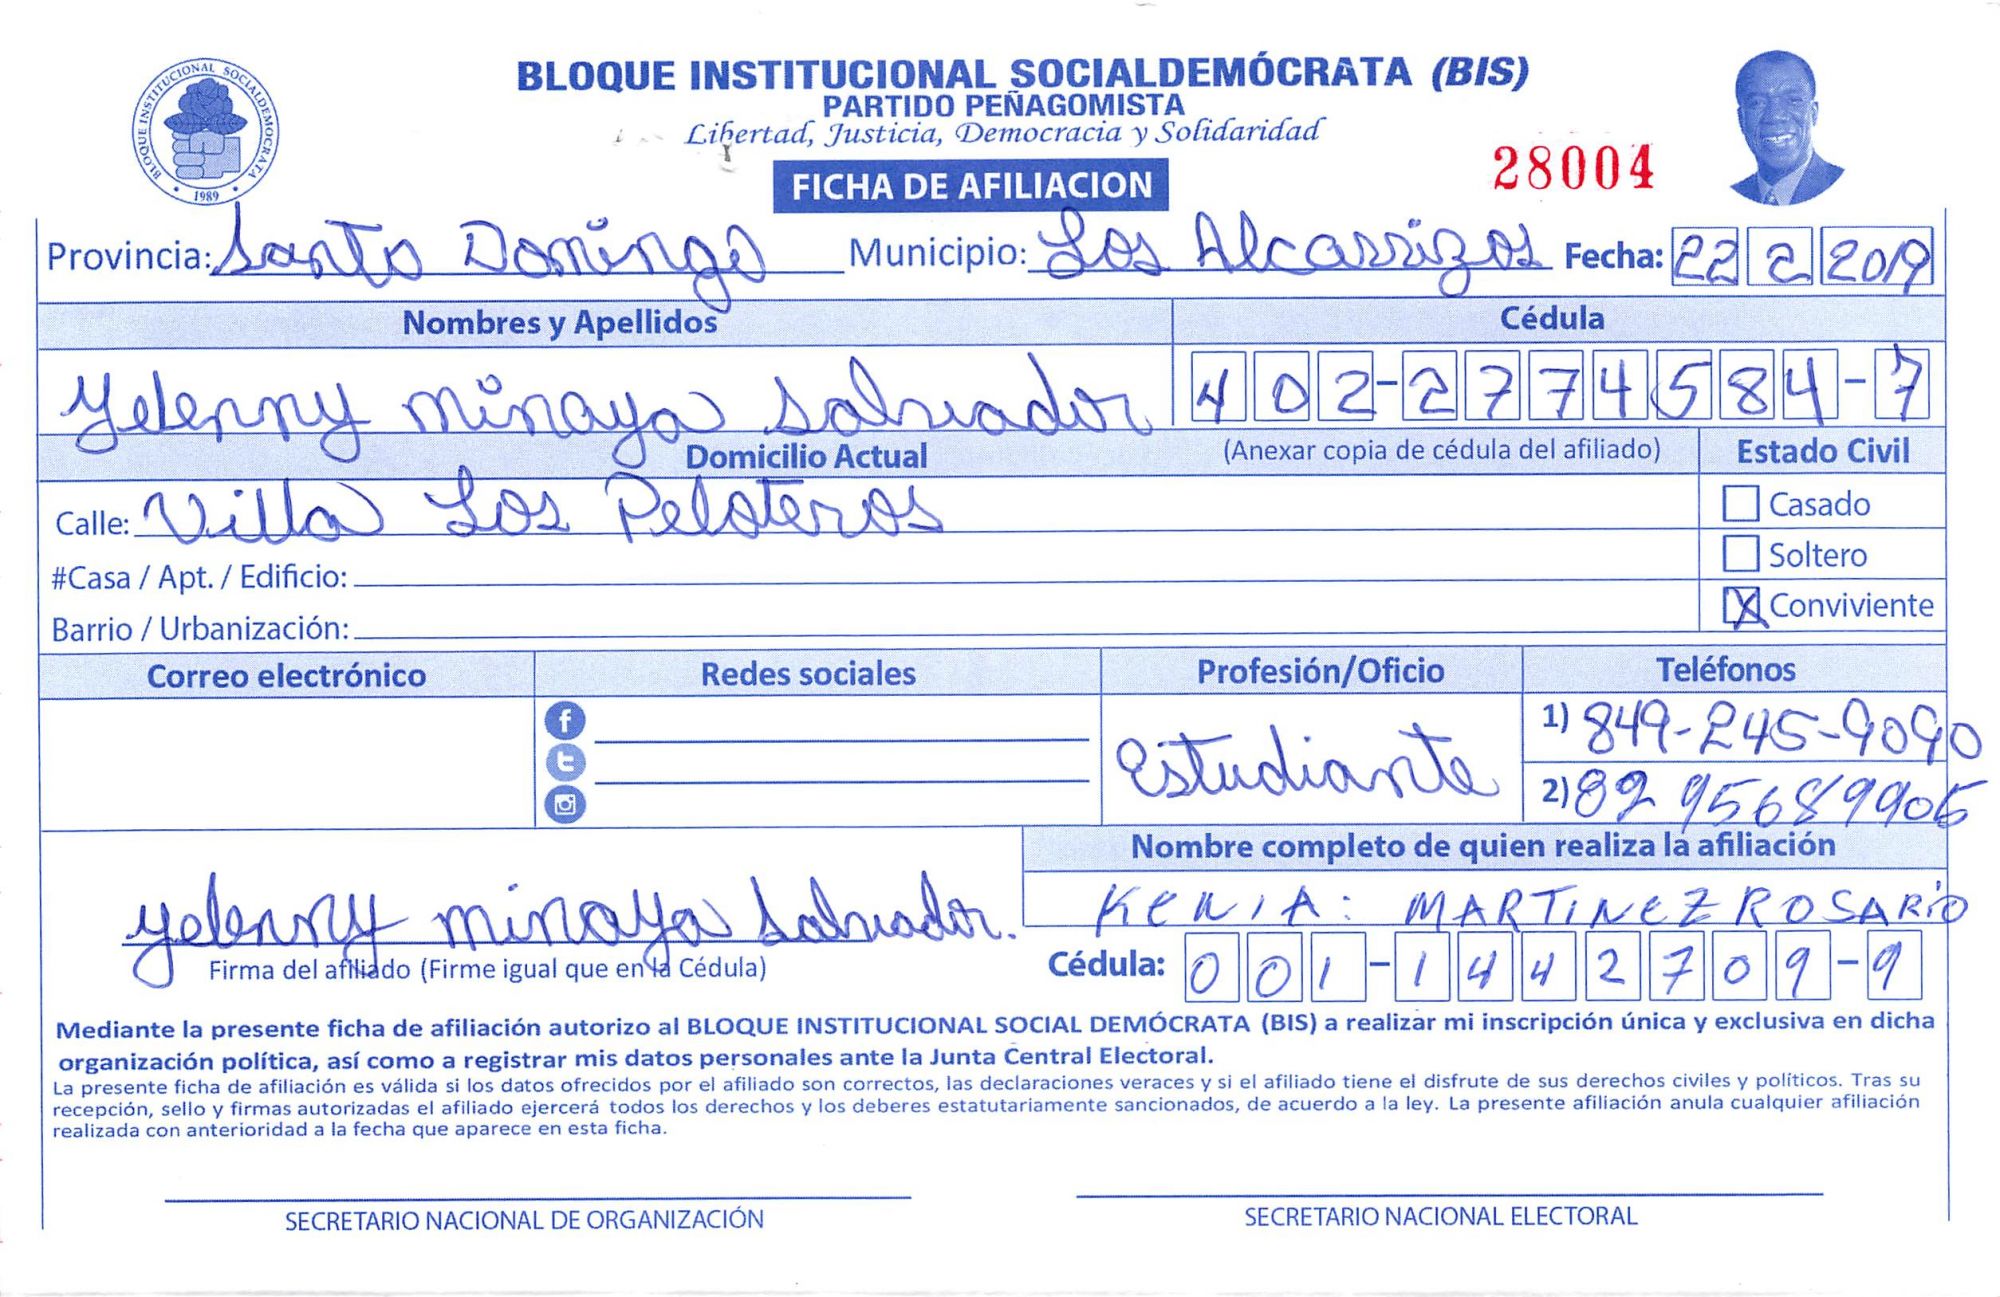 BLOQUE INSTITUCIONAL SOCIALDEMÓCRATA (BIS)
PARTIDO PEÑAGOMISTA
Libertad, Justicia, Democracia y Solidaridad
BLOQUE INSTITUCIONAL SOCIALDEMOCRATA
1989
FICHA DE AFILIACION
28004
Provincia: Santo Domingo Municipio: Los Alcarrizos Fecha: 22 2 2019
Nombres y Apellidos Cédula
Yelenny minaya Salvador 402-2774584-7
Domicilio Actual (Anexar copia de cédula del afiliado) Estado Civil
Calle: Villa Los Peloteros Casado
#Casa / Apt. / Edificio: Soltero
Barrio / Urbanización: X Conviviente
Correo electrónico Redes sociales Profesión/Oficio Teléfonos
Estudiante 1) 849-245-9090
2) 82 95689906
Nombre completo de quien realiza la afiliación
KENIA: MARTINEZ ROSARIO
yelenny minaya Salvador.
Firma del afiliado (Firme igual que en la Cédula) Cédula: 001-1442709-9
Mediante la presente ficha de afiliación autorizo al BLOQUE INSTITUCIONAL SOCIAL DEMÓCRATA (BIS) a realizar mi inscripción única y exclusiva en dicha
organización política, así como a registrar mis datos personales ante la Junta Central Electoral.
La presente ficha de afiliación es válida si los datos ofrecidos por el afiliado son correctos, las declaraciones veraces y si el afiliado tiene el disfrute de sus derechos civiles y políticos. Tras su
recepción, sello y firmas autorizadas el afiliado ejercerá todos los derechos y los deberes estatutariamente sancionados, de acuerdo a la ley. La presente afiliación anula cualquier afiliación
realizada con anterioridad a la fecha que aparece en esta ficha.
SECRETARIO NACIONAL DE ORGANIZACIÓN SECRETARIO NACIONAL ELECTORAL